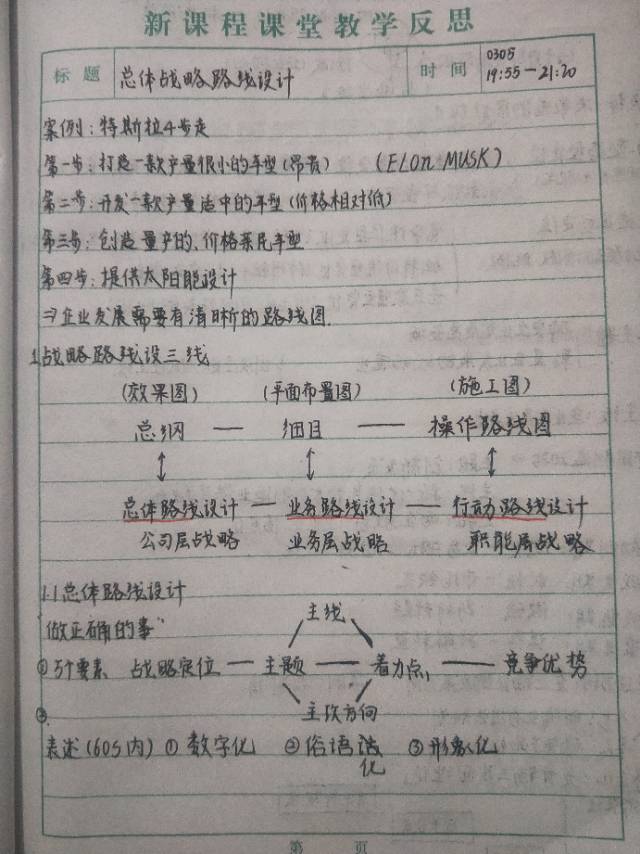 新课程课堂教学反思
标题 总体战略路线设计 时间 0305 19:55-21:20
案例:特斯拉4步走
第一步:打造一款产量很小的车型(昂贵) (ELON MUSK)
第二步:开发一款产量适中的车型(价格相对低)
第三步:创造量产的、价格亲民车型
第四步:提供太阳能设计
⇒企业发展需要有清晰的路线图.
1.战略路线设三线
(效果图) (平面布置图) (施工图)
总纲 — 细目 — 操作路线图
↕ ↕ ↕
总体路线设计 — 业务路线设计 — 行动路线设计
公司层战略 业务层战略 职能层战略
1.1总体路线设计
"做正确的事" 主线
①5个要素 战略定位 — 主题 — 着力点 — 竞争优势
② 主攻方向
表述(60S内) ①数字化 ②俗语法化 ③形象化
第 页